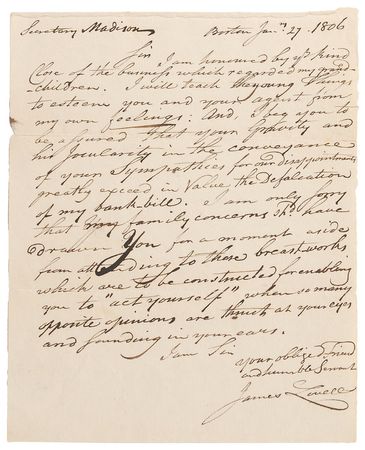 Secretary Madison Boston Jany. 27. 1806
Sir I am honoured by yr. kind
Close of the business which regarded my grand-
-children. I will teach the young things
to esteem you and your agent from
my own feelings: And, I beg you to
be assured that your Gravity and
his Jocularity in the conveyance
of your Sympathies for our disappointments
greatly exceed in Value the Defalcation
of my bank-bill. I am only sorry
that my family concerns shd. have
drawn You for a moment aside
from attending to those breast-works
which are to be constructed for enabling
you to "act yourself" when so many
opposite opinions are thrust at your eyes
and sounding in your ears.
I am Sir
your obliged Friend
and humble Servant
James Lovell